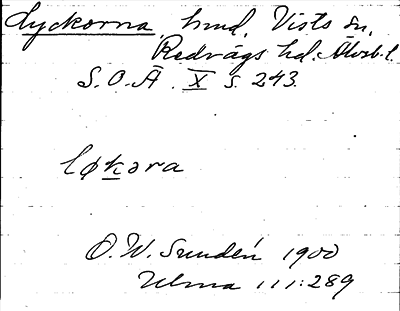 Lyckorna, hmd, Vists sn,
Redvägs hd. Älvsb. l.
S. O. Ä. X s. 243.
løkora
O. W. Sundén 1900
Ulma 111:289